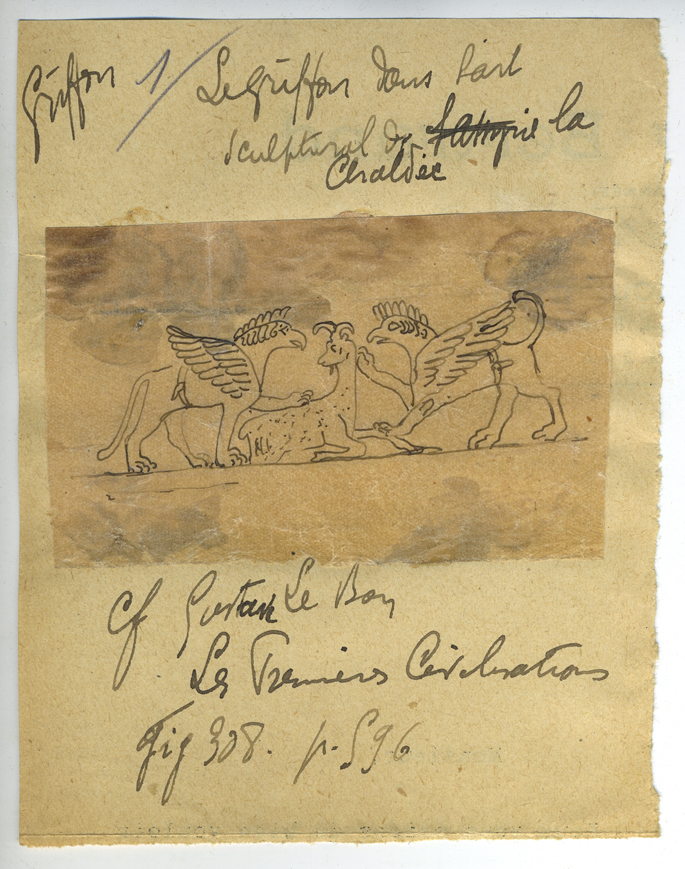 Griffon 1/
Le Griffon dans l'art
sculptural de l'assyrie la
Chaldée
cf Gustave Le Bon
Les Premières Civilisations
Fig 308. p. 596